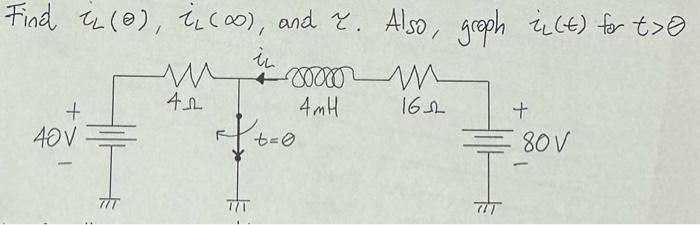 Find iL(0), iL(∞), and τ. Also, graph iL(t) for t>0
iL
4Ω
4mH
16Ω
+
40V
-
t=0
+
80V
-